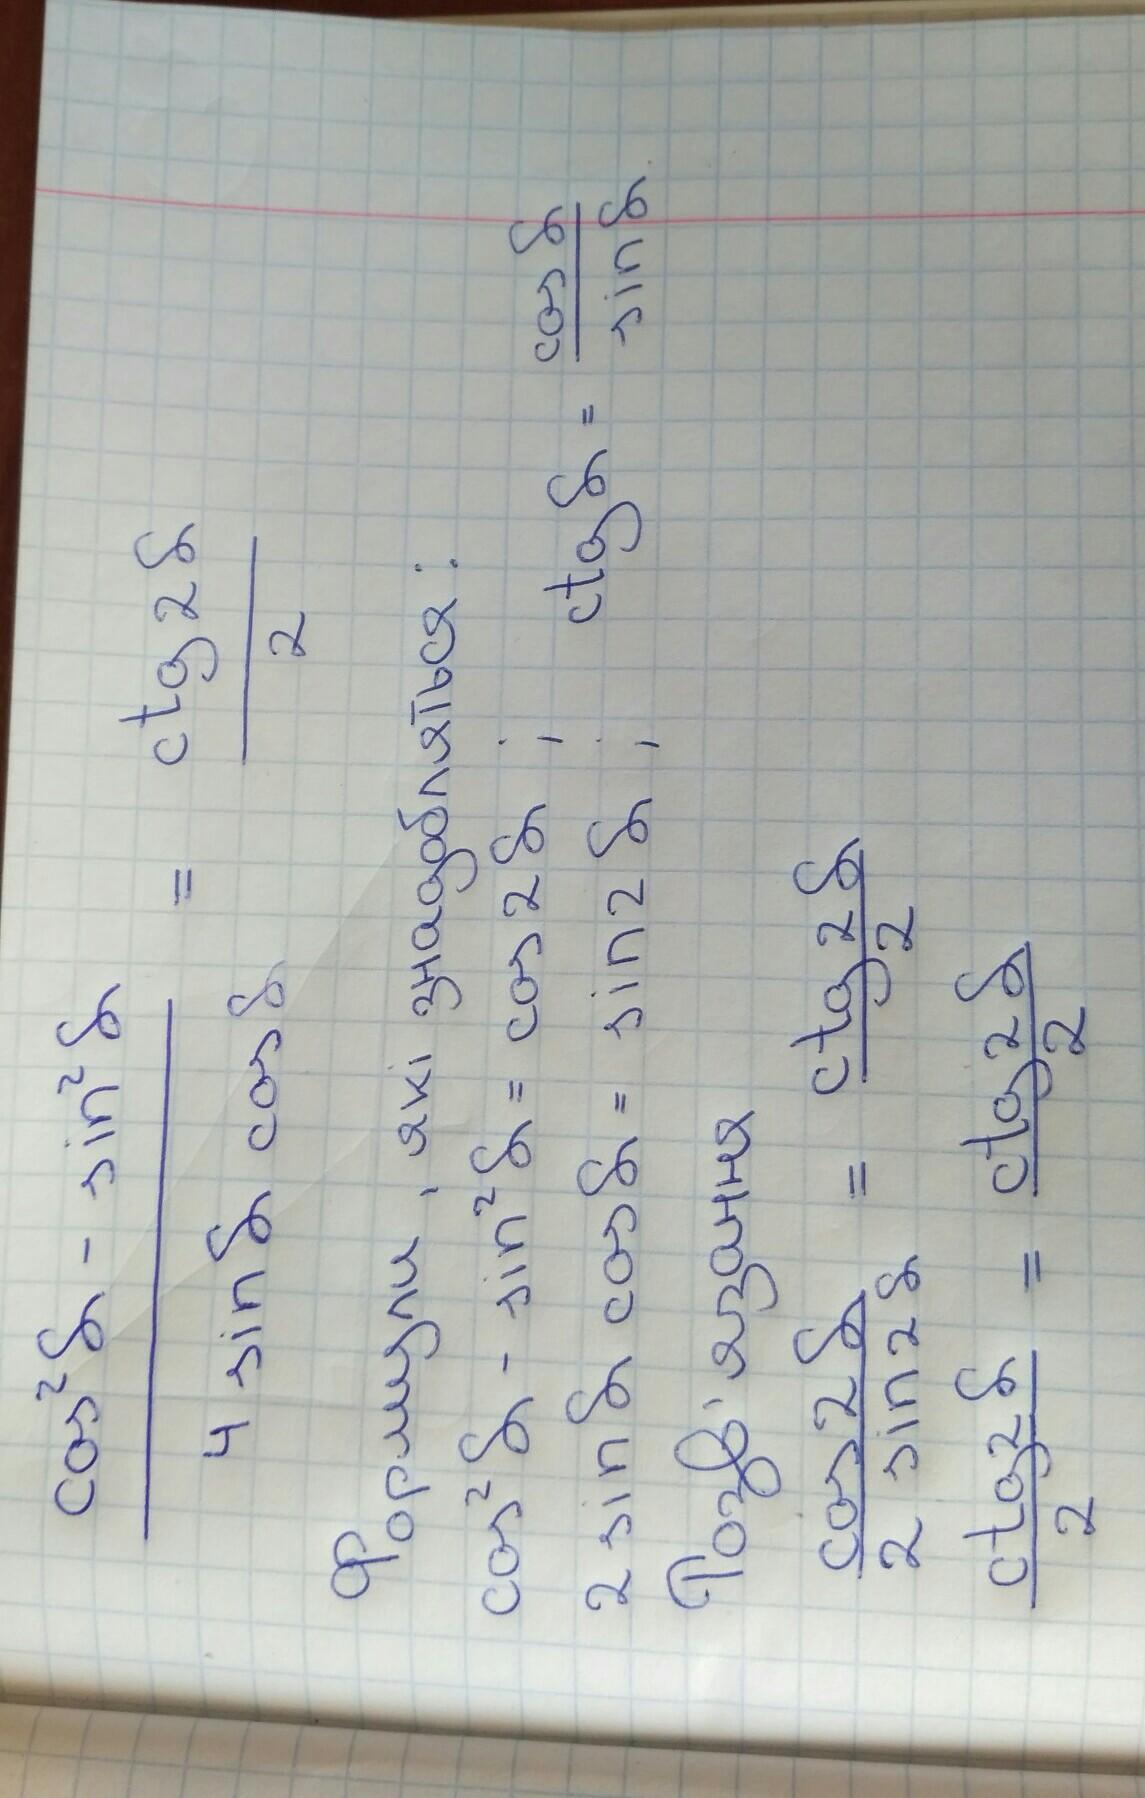 cos²δ - sin²δ / 4 sinδ cosδ = ctg2δ / 2
Формули, які знадобляться:
cos²δ - sin²δ = cos2δ;
2 sinδ cosδ = sin2δ; ctgδ = cosδ / sinδ
Розв'язання
cos2δ / 2 sin2δ = ctg2δ / 2
ctg2δ / 2 = ctg2δ / 2